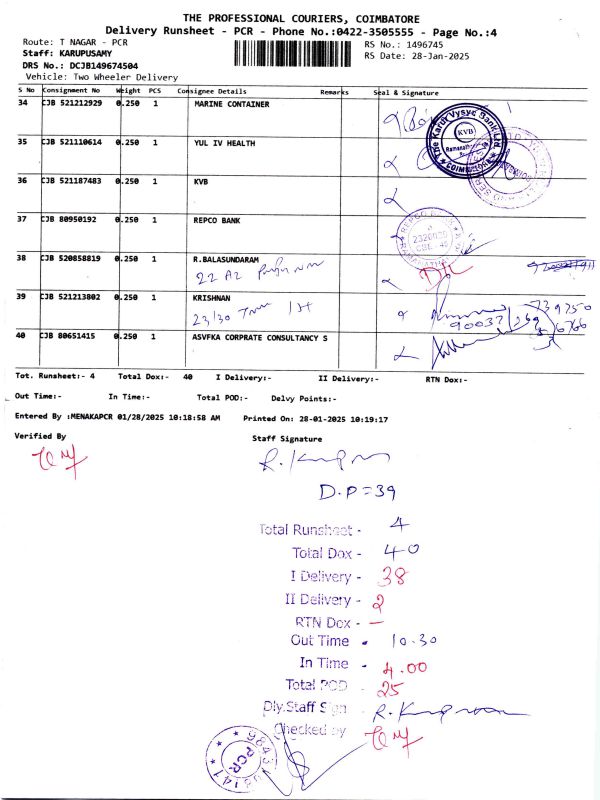 THE PROFESSIONAL COURIERS, COIMBATORE
Delivery Runsheet - PCR - Phone No.:0422-3505555 - Page No.:4
Route: T NAGAR - PCR
RS No.: 1496745
Staff: KARUPUSAMY
RS Date: 28-Jan-2025
DRS No.: DCJB149674504
Vehicle: Two Wheeler Delivery
S No Consignment No Weight PCS Consignee Details Remarks Seal & Signature
34 CJB 521212929 0.250 1 MARINE CONTAINER
The Karur Vysya Bank Ltd.
KVB
COIMBATORE
35 CJB 521110614 0.250 1 YUL IV HEALTH
36 CJB 521187483 0.250 1 KVB
37 CJB 80950192 0.250 1 REPCO BANK
38 CJB 520858819 0.250 1 R.BALASUNDARAM
22 A2
39 CJB 521213802 0.250 1 KRISHNAN
23/30 1st
40 CJB 80651415 0.250 1 ASVFKA CORPRATE CONSULTANCY S
Tot. Runsheet:- 4 Total Dox:- 40 I Delivery:- II Delivery:- RTN Dox:-
Out Time:- In Time:- Total POD:- Delvy Points:-
Entered By :MENAKAPCR 01/28/2025 10:18:58 AM Printed On: 28-01-2025 10:19:17
Verified By Staff Signature
D.P=39
Total Runsheet - 4
Total Dox - 40
I Delivery - 38
II Delivery - 2
RTN Dox - —
Out Time - 10.30
In Time - 4.00
Total POD - 25
Dly.Staff Sign -
Checked by
PCR